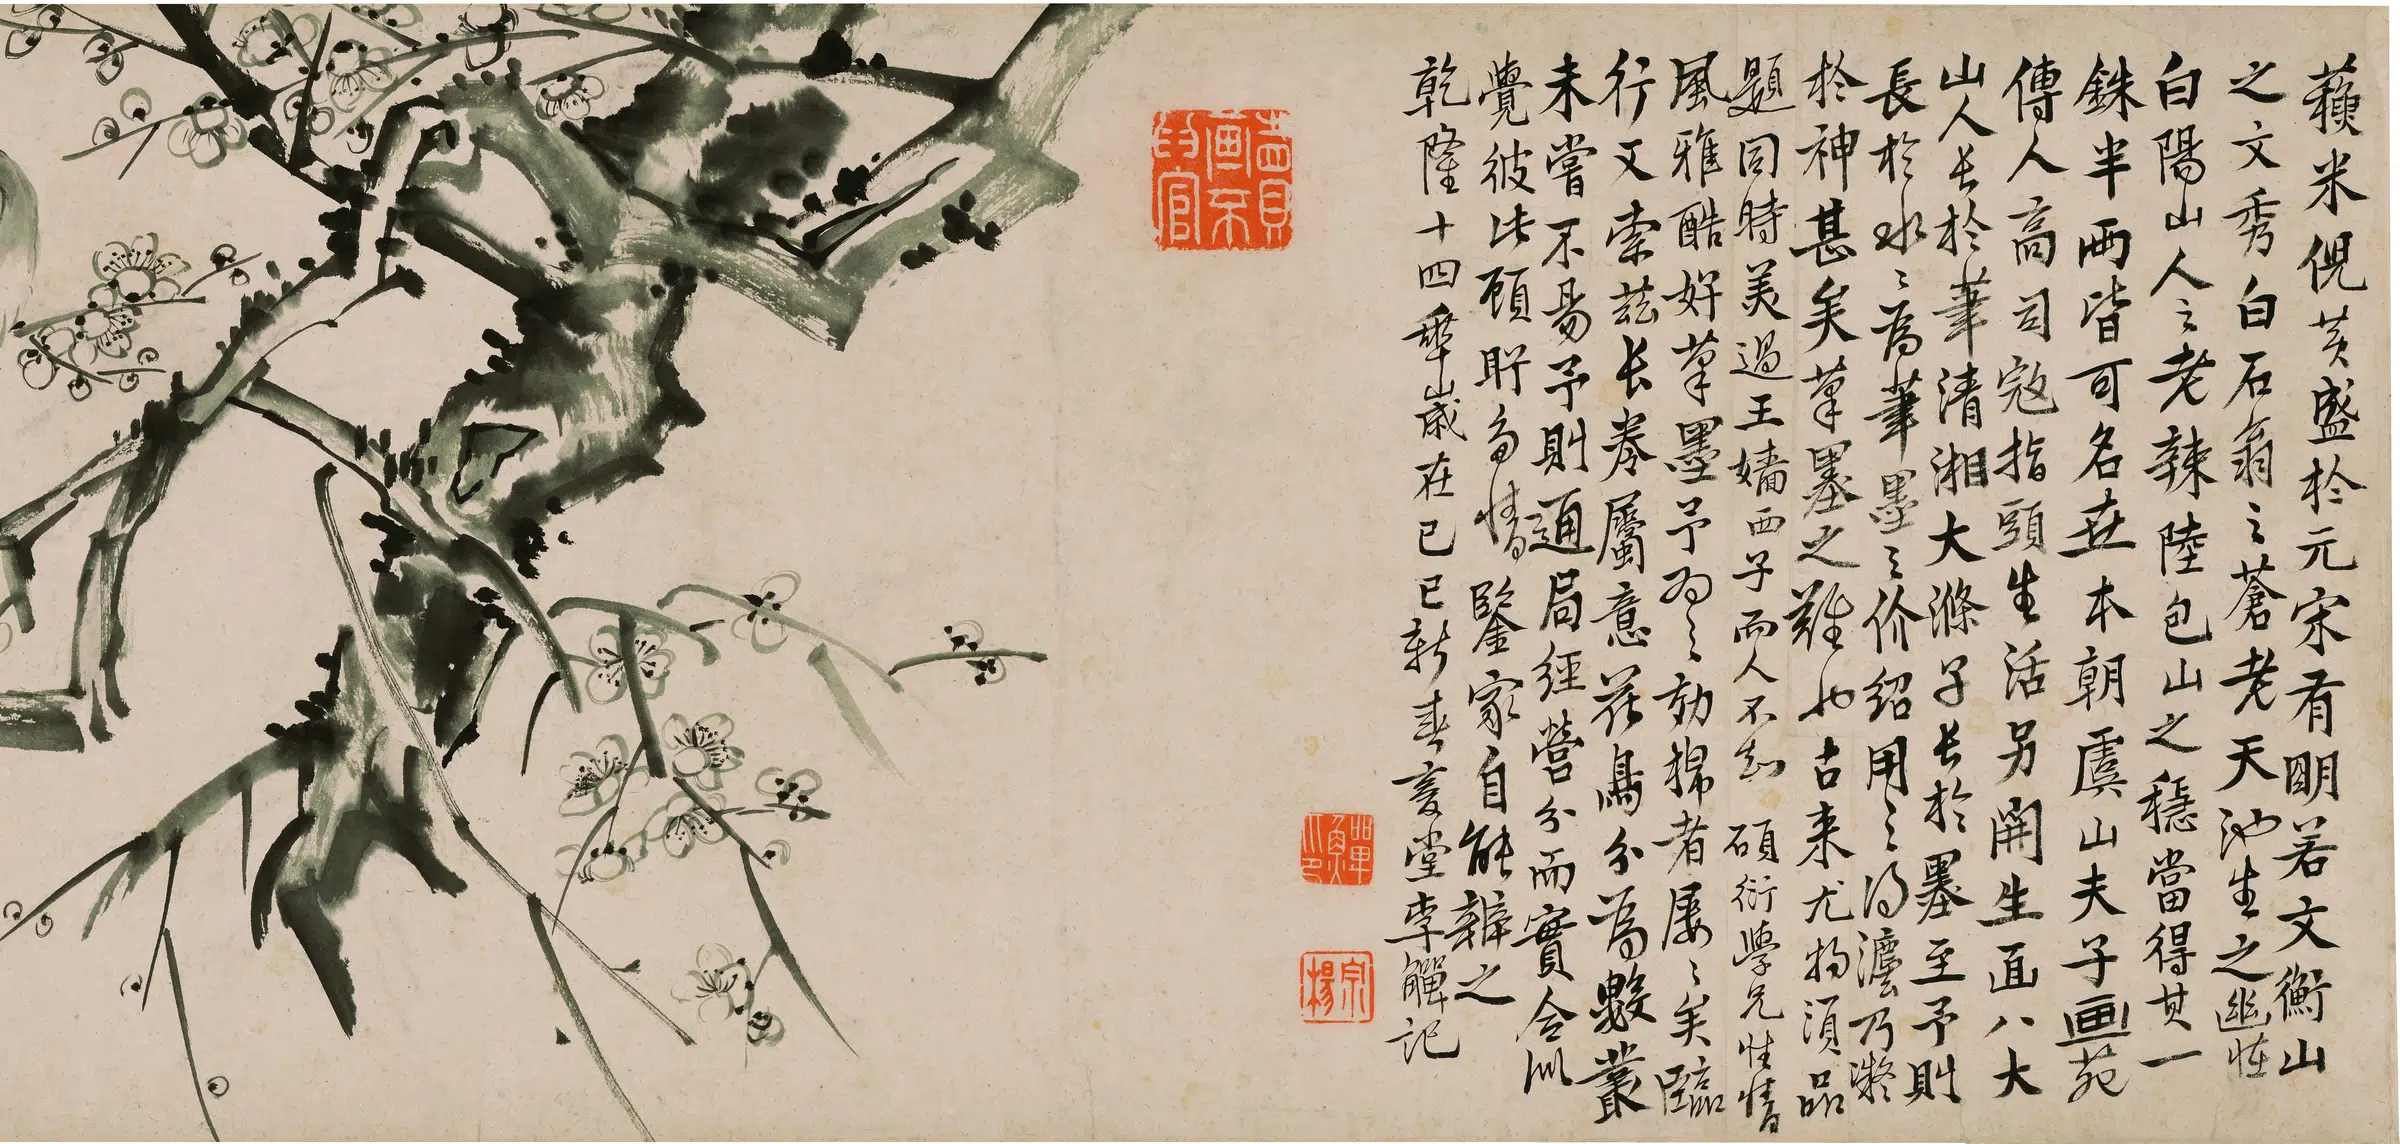 蘓米倪黃盛於元宋有明若文衡山
之文秀白石翁之蒼老天池生之幽怪
白陽山人之老辣陸包山之穩當得其一
銖半兩皆可名世本朝虞山夫子画苑
傳人高司寇指頭生活另開生面八大
山人長於筆清湘大滌子長於墨至予則
長於水水為筆墨之介紹用之得法乃凝
於神甚矣筆墨之難也古来尤物須品
題同時美過王嬙西子而人不知 碩衍學兄性情
風雅酷好筆墨予為之効掃者屢屢矣臨
行又索茲長卷屬意花鳥分為數叢
未嘗不易予則通局經營分而實合似
覺彼此顧盼多情鑒家自能辨之
乾隆十四年歲在己巳新春㐬堂李觶記
畫不
官
宗楊